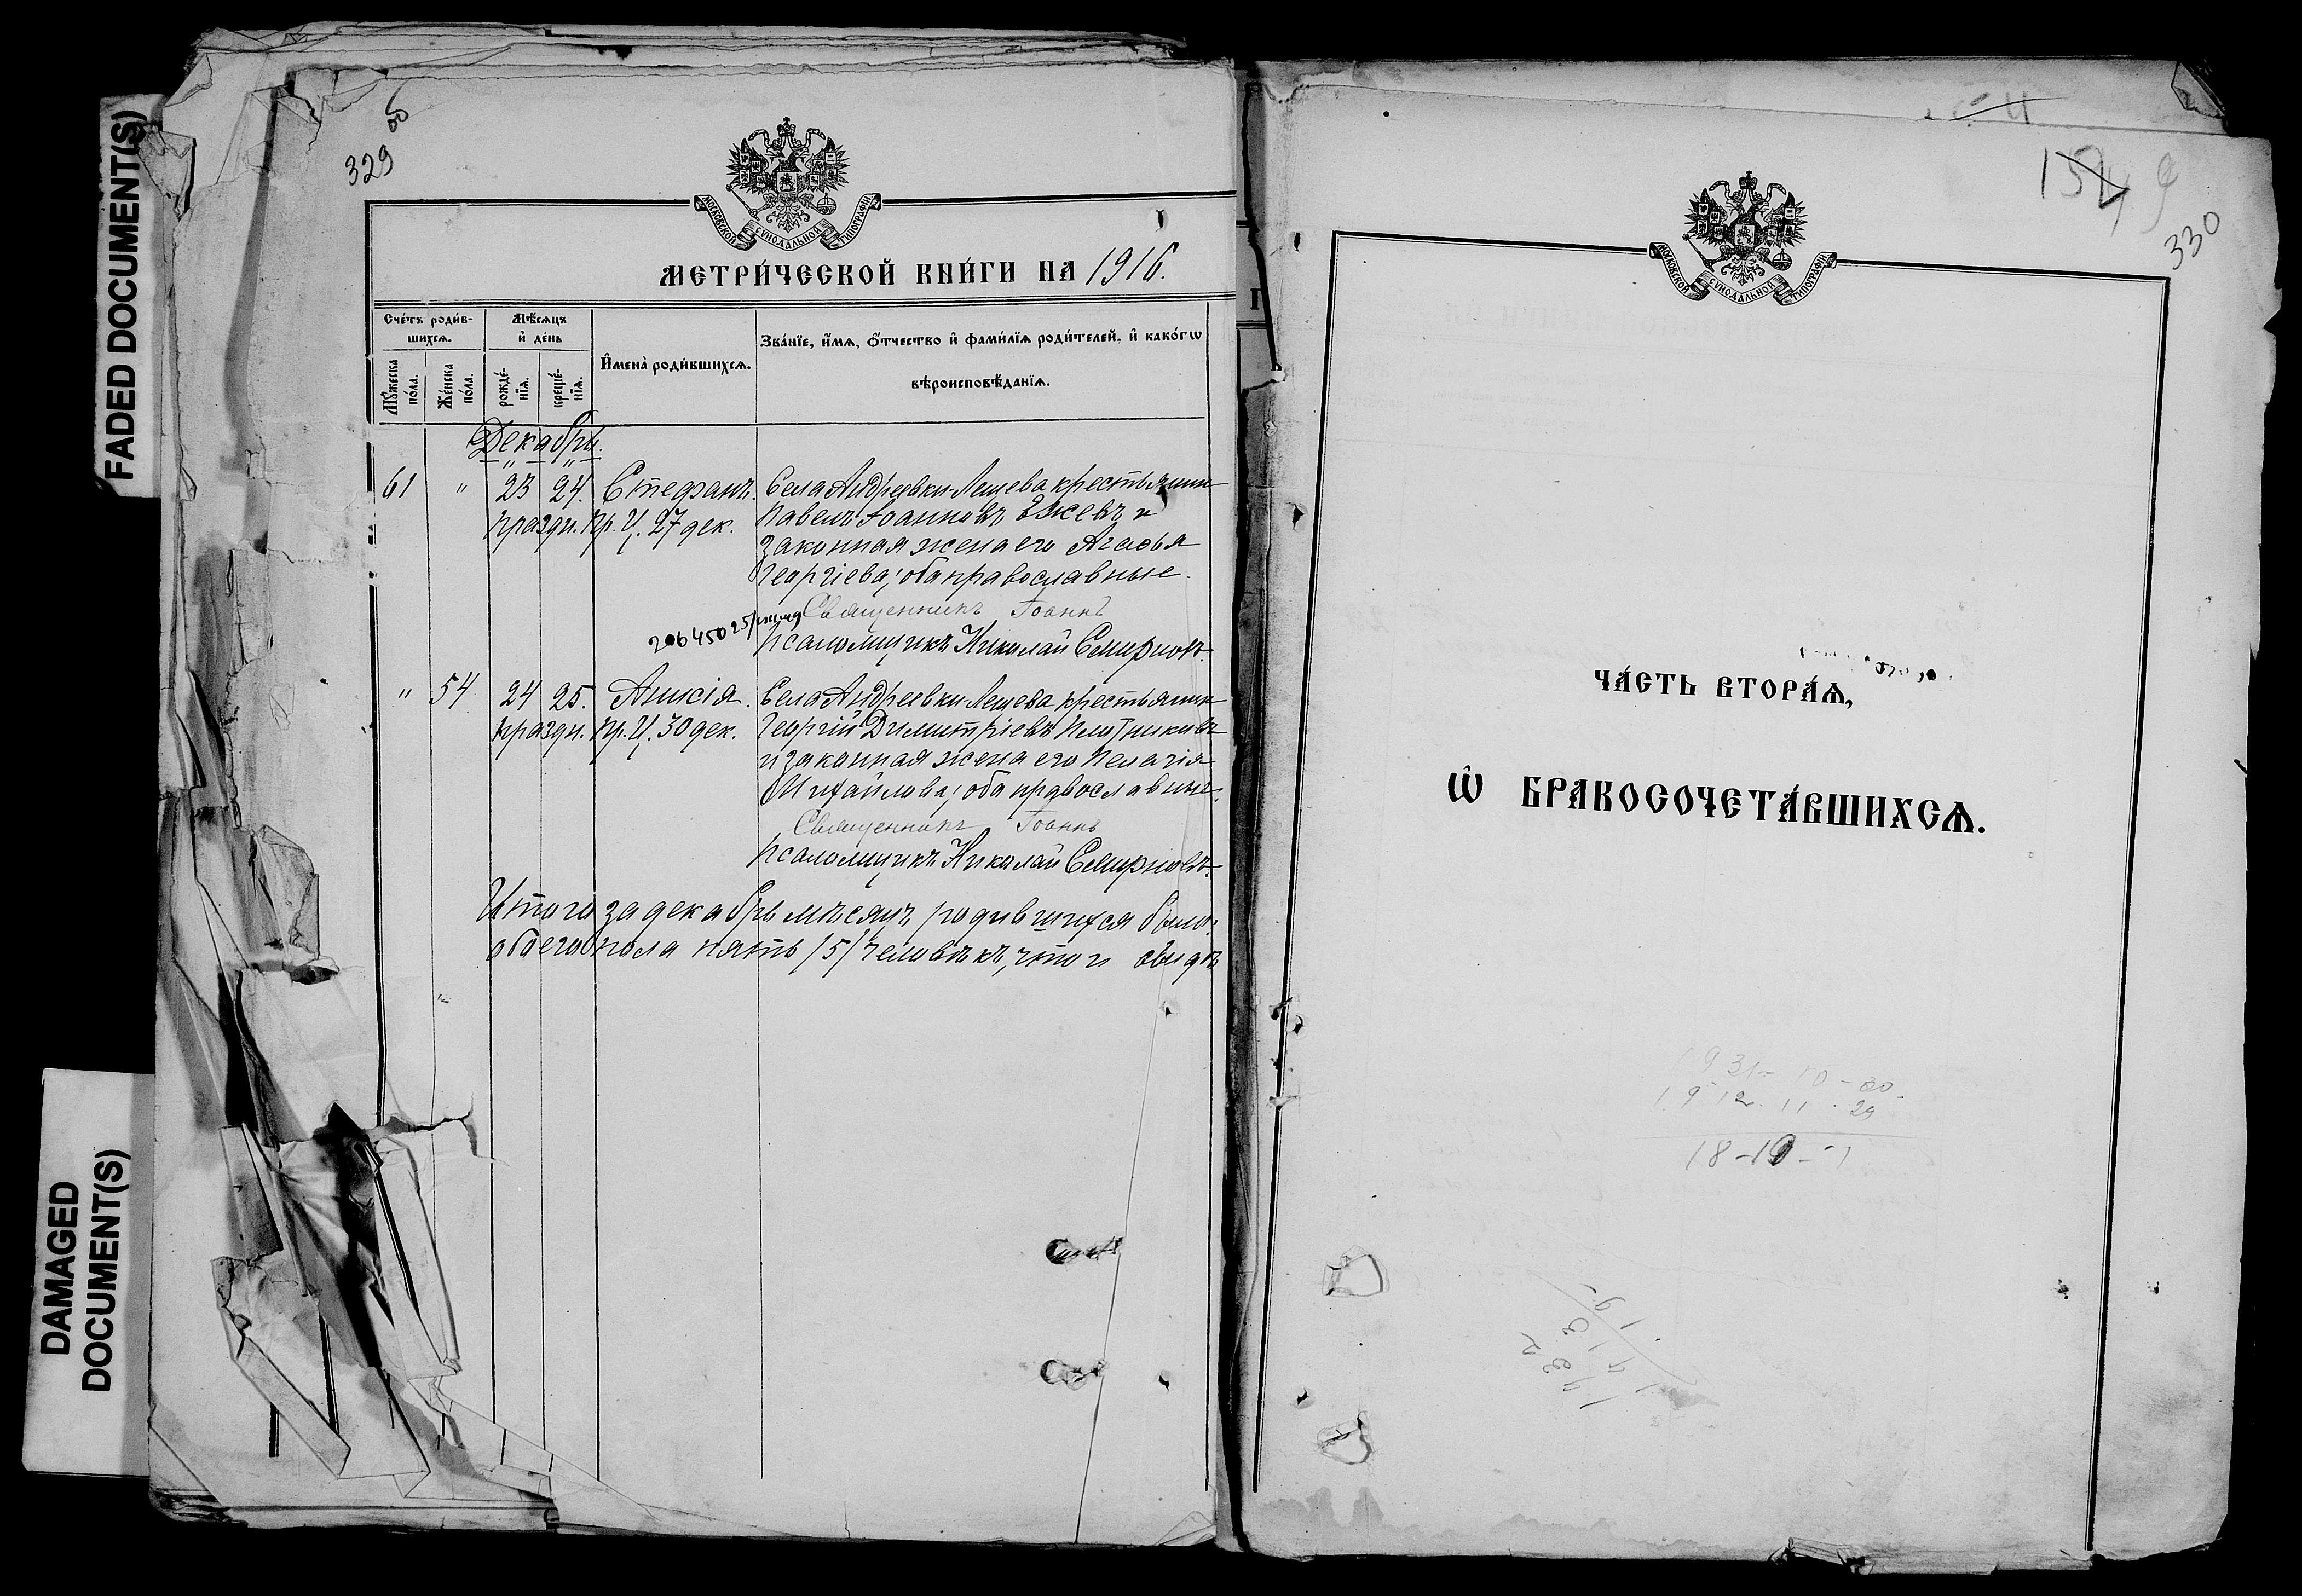 FADED DOCUMENT(S)
DAMAGED
DOCUMENT(S)
329 об
МОСКОВСКОЙ СѴНОДАЛЬНОЙ ТИПОГРАФІИ
МЕТРИ́ЧЕСКОЙ КНИ́ГИ НА 1916.
Сче́тъ роди́в-
шихсѧ.
Мѣ́сѧцъ
и҆ де́нь
Мꙋ́жеска
по́ла.
Же́нска
по́ла.
рожде́-
нїѧ.
креще́-
нїѧ.
И҆мена̀ роди́вшихсѧ.
Зва́нїе, и҆́мѧ, о҆́тчество и҆ фами́лїѧ роди́телей, и҆ како́гѡ
вѣроисповѣ́данїѧ.
Декабрь.
61 " 23 24. Стефанъ. Села Андреевки Лещева крестьянин
праздн. пр. Ц. 27 дек. Павелъ Іоанновъ Ежевъ и
законная жена его Агафья
Георгіева; оба православные.
Священникъ Іоаннъ
206450 25/
Псаломщикъ Николай Смирновъ.
" 54 24 25. Анисія. Села Андреевки Лещева крестьянин
праздн. пр. Ц. 30 дек. Георгій Димитріевъ Плотниковъ
и законная жена его Пелагія
Михайлова; оба православны.
Священникъ Іоаннъ
Псаломщикъ Николай Смирновъ.
Итого за декабрь мѣсяцъ родившихся было:
обоего пола пять /5/ человѣкъ, что и свидѣ
330
МОСКОВСКОЙ СѴНОДАЛЬНОЙ ТИПОГРАФІИ
ЧА́СТЬ ВТОРА́Ѧ,
Ѡ҆ БРАКОСОЧЕТА́ВШИХСѦ.
1931-10-30
1912-11-29
18-10-1
1932
1913
19